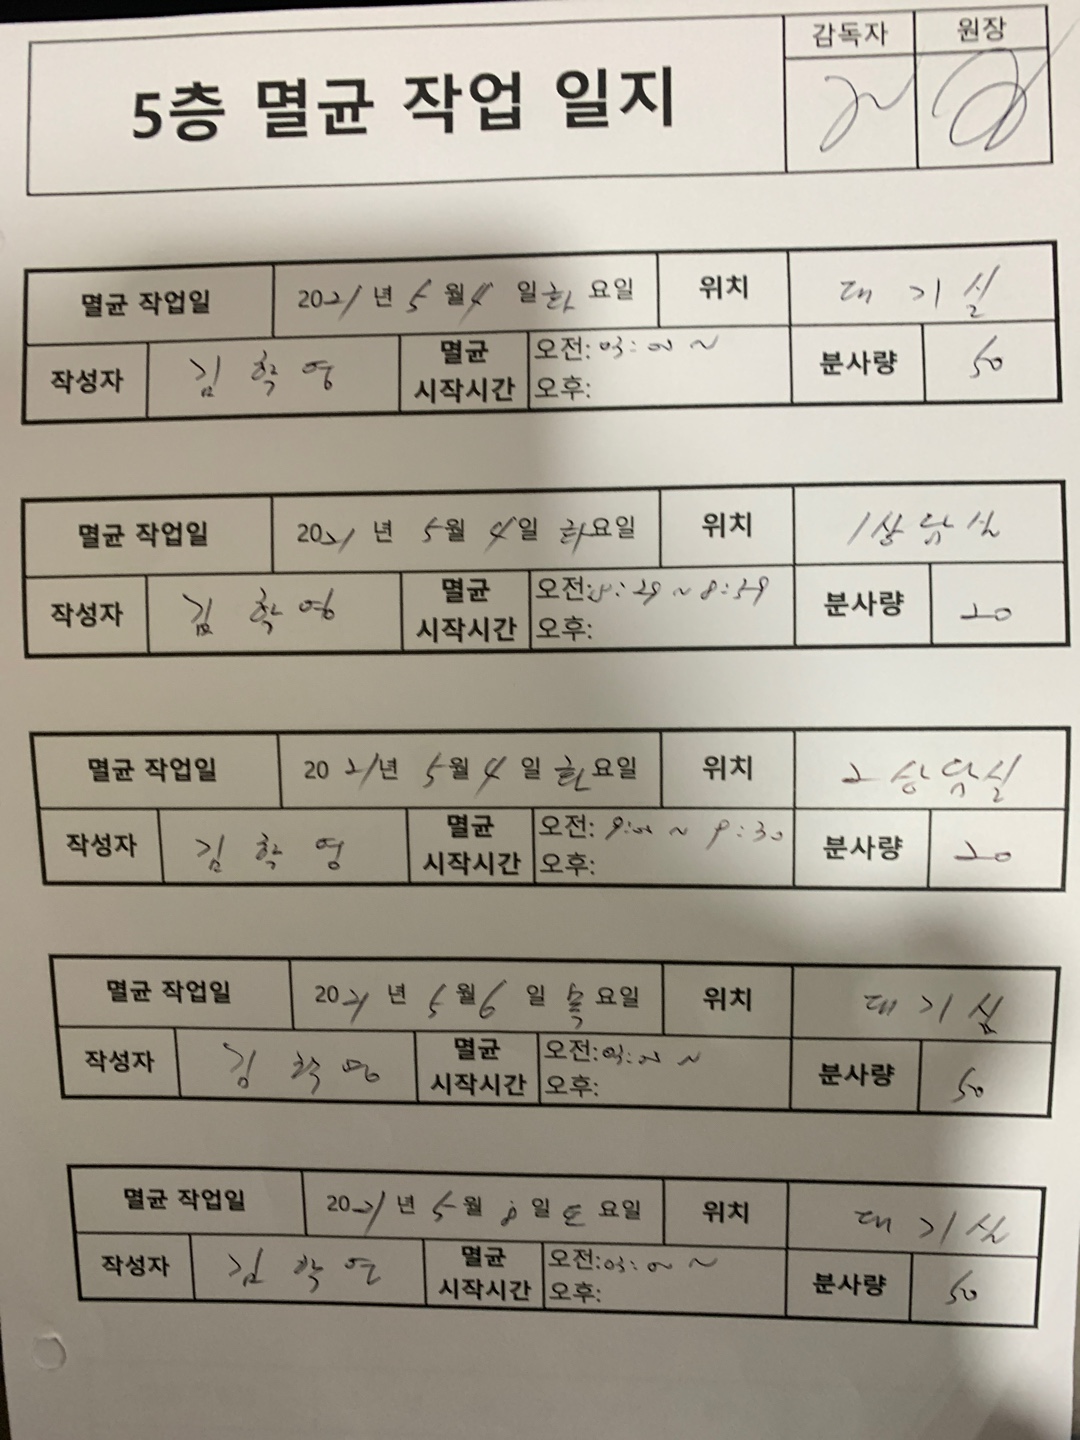 감독자 원장
5층 멸균 작업 일지
멸균 작업일 2021년 5월 4일 화요일 위치 대기실
작성자 김학영 멸균 시작시간 오전: 03:00 ~ 분사량 50
오후:
멸균 작업일 2021년 5월 4일 화요일 위치 1상담실
작성자 김학영 멸균 시작시간 오전: 8:29 ~ 8:59 분사량 20
오후:
멸균 작업일 2021년 5월 4일 화요일 위치 2상담실
작성자 김학영 멸균 시작시간 오전: 9:00 ~ 9:30 분사량 20
오후:
멸균 작업일 2021년 5월 6일 목요일 위치 대기실
작성자 김학영 멸균 시작시간 오전: 03:00 ~ 분사량 50
오후:
멸균 작업일 2021년 5월 8일 토요일 위치 대기실
작성자 김학영 멸균 시작시간 오전: 03:00 ~ 분사량 50
오후: